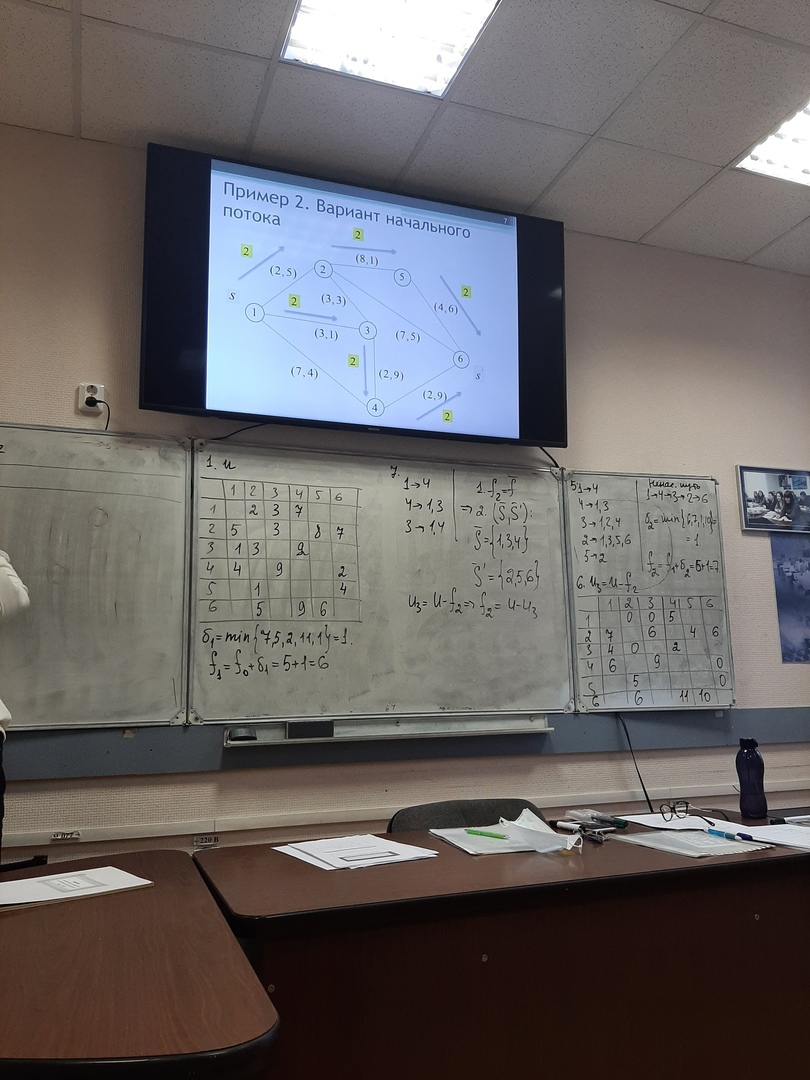 Пример 2. Вариант начального
потока
7
2
2
(8,1)
(2,5)
2
5
2
s
2
(3,3)
(4,6)
1
(3,1)
3
(7,5)
6
s
(7,4)
2
(2,9)
(2,9)
4
2
1. u
1 2 3 4 5 6
1 2 3 7
2 5 3 8 7
3 1 3 2
4 4 9 2
5 1 4
6 5 9 6
δ₁=min{7,5,2,11,1}=1.
f₁=f₀+δ₁=5+1=6
7.
1→4
4→1,3
3→1,4
1. f₂=f̄
⇒ 2. (S̄,S̄'):
S̄={1,3,4}
S̄'={2,5,6}
u₃=u-f₂⇒f₂=u-u₃
5. 1→4
4→1,3
3→1,2,4
2→1,3,5,6
5→2
Ненас. путь
1→4→3→2→6
δ₂=min{6,7,1,10}=
=1
f₂=f₁+δ₂=6+1=7.
6. u₃=u-f₂
1 2 3 4 5 6
1 0 0 5
2 7 6 4 6
3 4 0 2
4 6 9 0
5 5 0
6 6 11 10
220 В